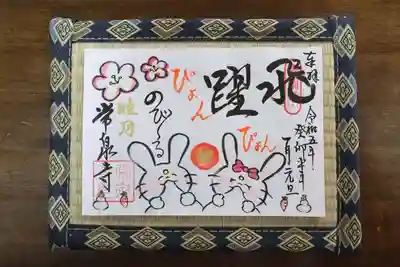 奉拝 令和五年
癸卯年
一月元日
飛躍
ぴょん
ぴょん
のび〜る
睦月
常泉寺